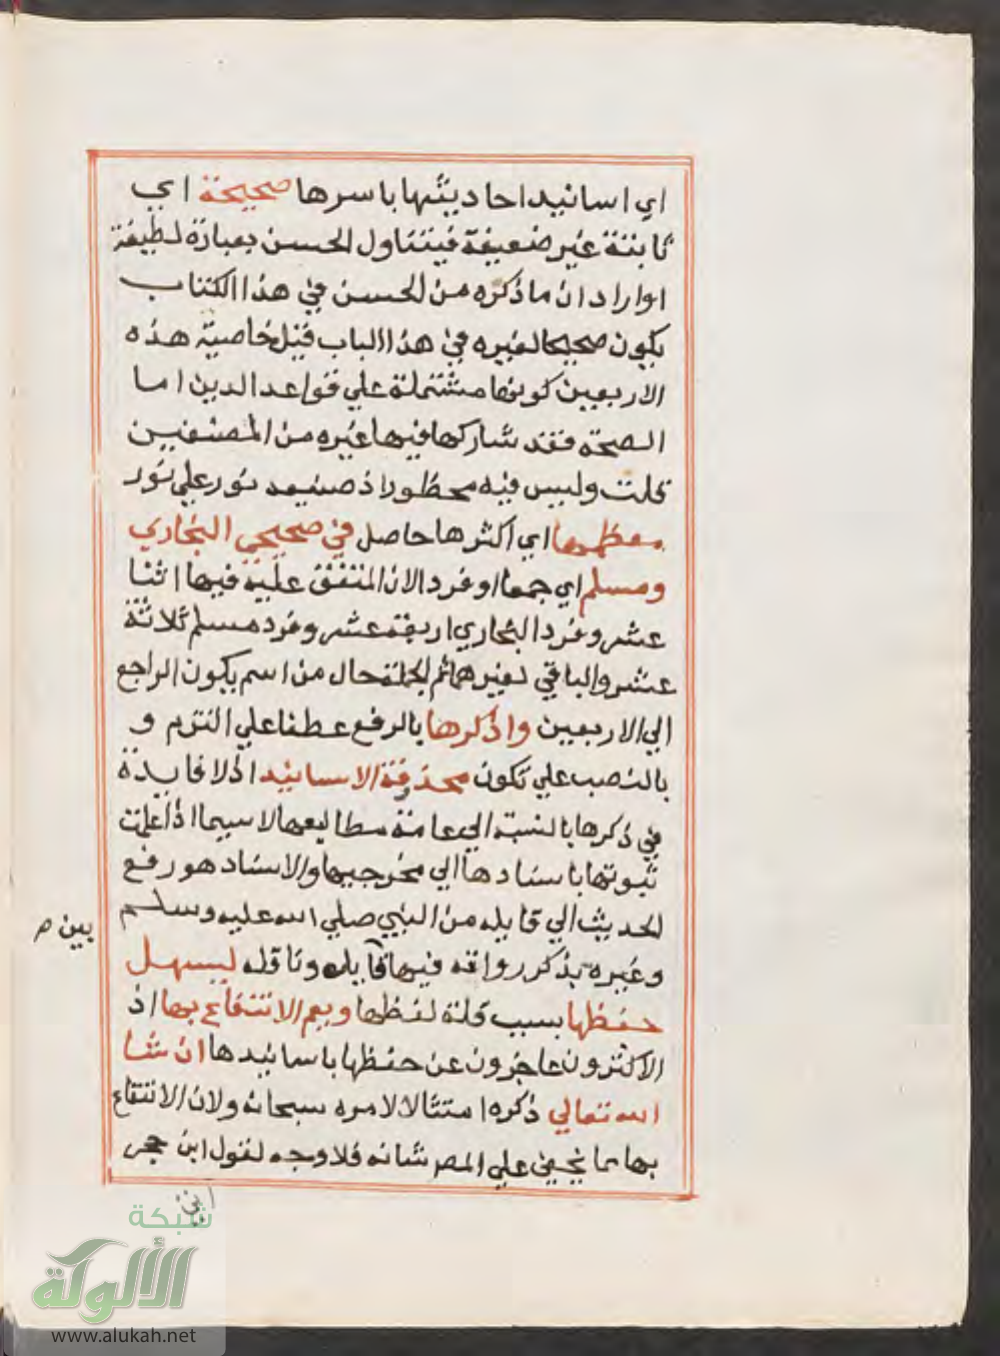 اي اسانيد احاديثها باسرها صحيحة اي
ثابتة غير ضعيفة فيتناول الحسن بعبارة لطيفة
او اراد ان ما ذكره من الحسن في هذا الكتاب
يكون صحيحا لغيره في هذا الباب قيل خاصية هذه
الاربعين كونها مشتملة علي قواعد الدين اما
الصحة فقد شاركها فيها غيره من المصنفين
قلت وليس فيه محظور اذ صنيعه نور علي نور
معظمها اي اكثرها حاصل في صحيحي البخاري
ومسلم اي جمعا او فردا لان المتفق عليه فيها اثنا
عشر وفرد البخاري اربعة عشر وفرد مسلم ثلاثة
عشر والباقي لغيرهما ثم الجملة حال من اسم يكون الراجع
الي الاربعين واذكرها بالرفع عطفا علي التزم و
بالنصب علي تكون محذوفة الاسانيد اذ لا فايدة
في ذكرها بالنسبة الي عامة مطاليعها لا سيما اذا علمت
ثبوتها باسنادها الي مخرجيها والاسناد هو رفع
الحديث الي قايله من النبي صلي الله عليه وسلم
بين م
وغيره بذكر رواته فيها قايله وناقله ليسهل
حفظها بسبب قلة لفظها ويعم الانتفاع بها اذ
الاكثرون عاجزون عن حفظها باسانيدها ان شا
الله تعالي ذكره امتثالا لامره سبحانه ولان الانتفاع
بها مما يخفي علي المصر شانه فلا وجه لقول ابن حجر
شبكة
الألوكة
www.alukah.net